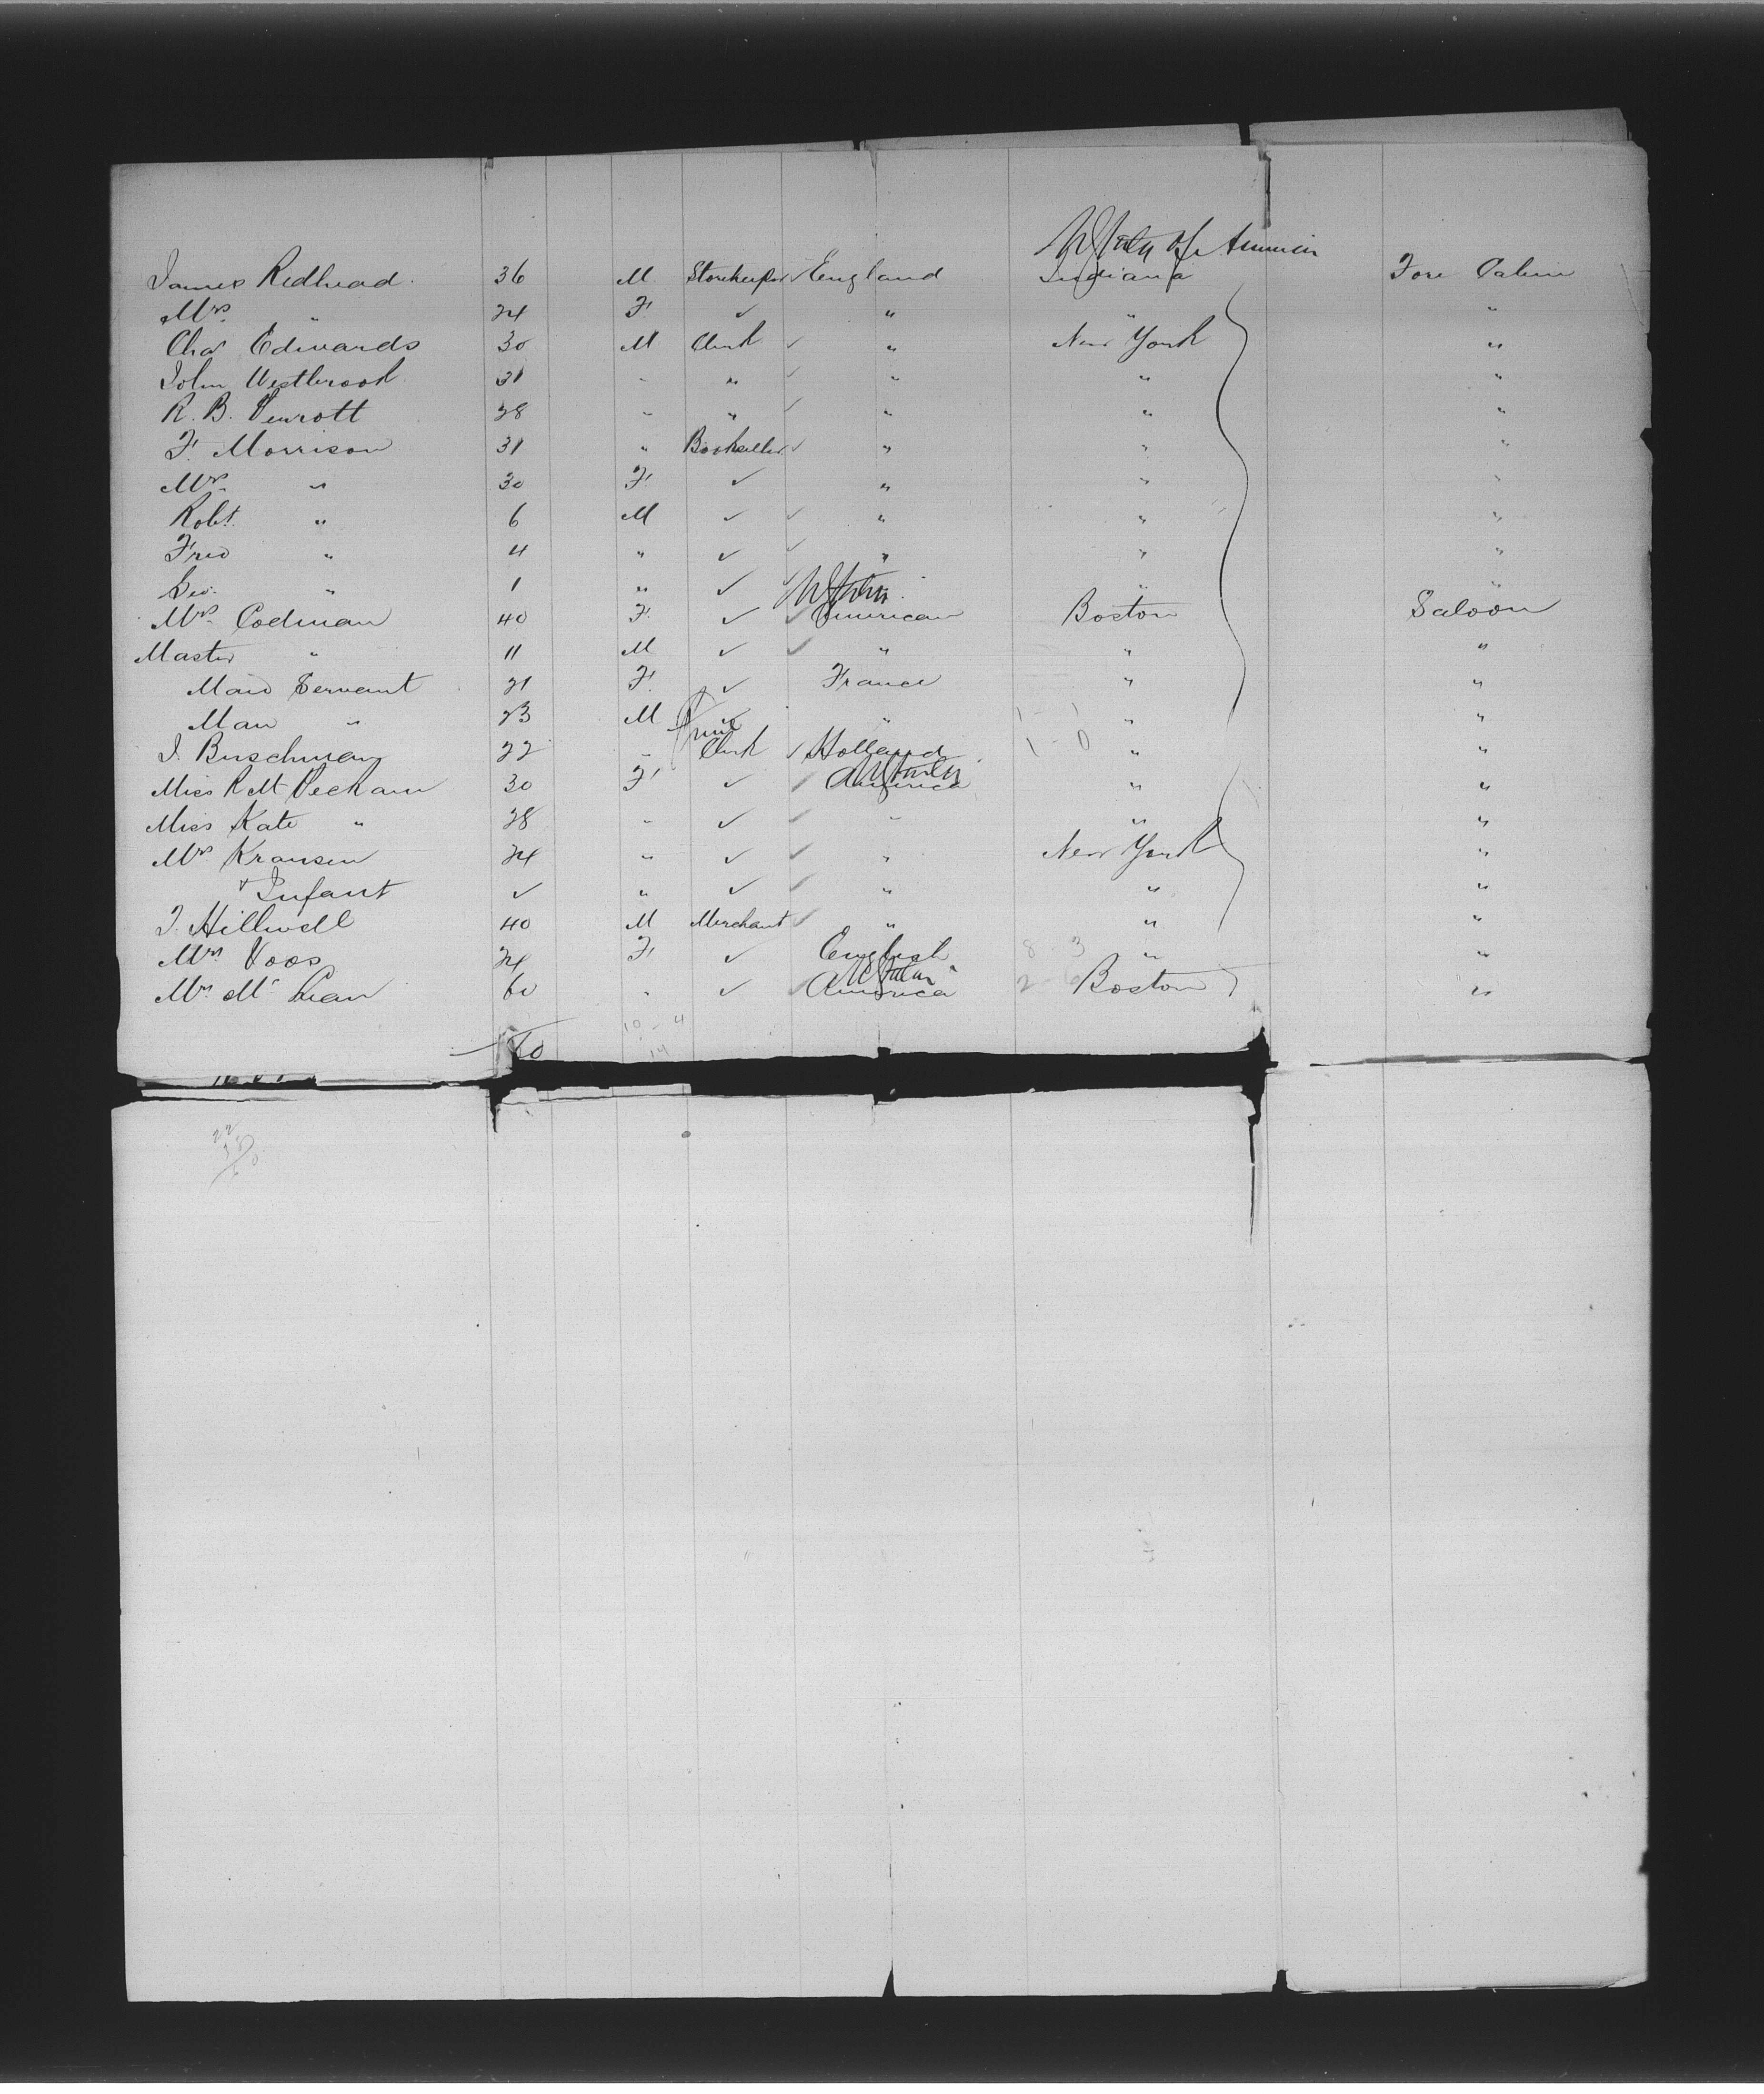 U States of America
James Redhead. 36 M Storekeeper ✓ England Indiana Fore Cabin
Mrs " 24 F. ✓ " " "
Chas Edwards 30 M Clerk ✓ " New York "
John Westbrook 31 " " ✓ " " "
R. B. 28 " " ✓ " " "
F. Morrison 31 " Bookseller ✓ " " "
Mrs " 30 F. ✓ " " "
Robt. " 6 M ✓ ✓ " " "
Fred " 4 " ✓ ✓ " " "
Geo. " 1 " ✓ ✓ " " "
U States
Mrs Codman 40 F. ✓ ✓ American Boston Saloon
Master " 11 M ✓ ✓ " " "
Maid Servant 21 F. ✓ France " "
Man " 23 M ✓ " 1 - 1 " "
J. Buschman 22 " Clerk ✓ Holland 1 - 0 " "
U States
Miss R Mt 30 F ✓ ✓ America " "
Miss Kate " 28 " ✓ ✓ " " "
Mrs Kransen 24 " ✓ ✓ " New York "
& Infant ✓ " ✓ ✓ " " "
J. Hilliwell 40 M Merchant ✓ " " "
Mrs Voos 24 F ✓ English 8 - 3 " "
U States
Mrs Mc Lean 60 " ✓ ✓ America 2 Boston "
60 10 - 4
14
22